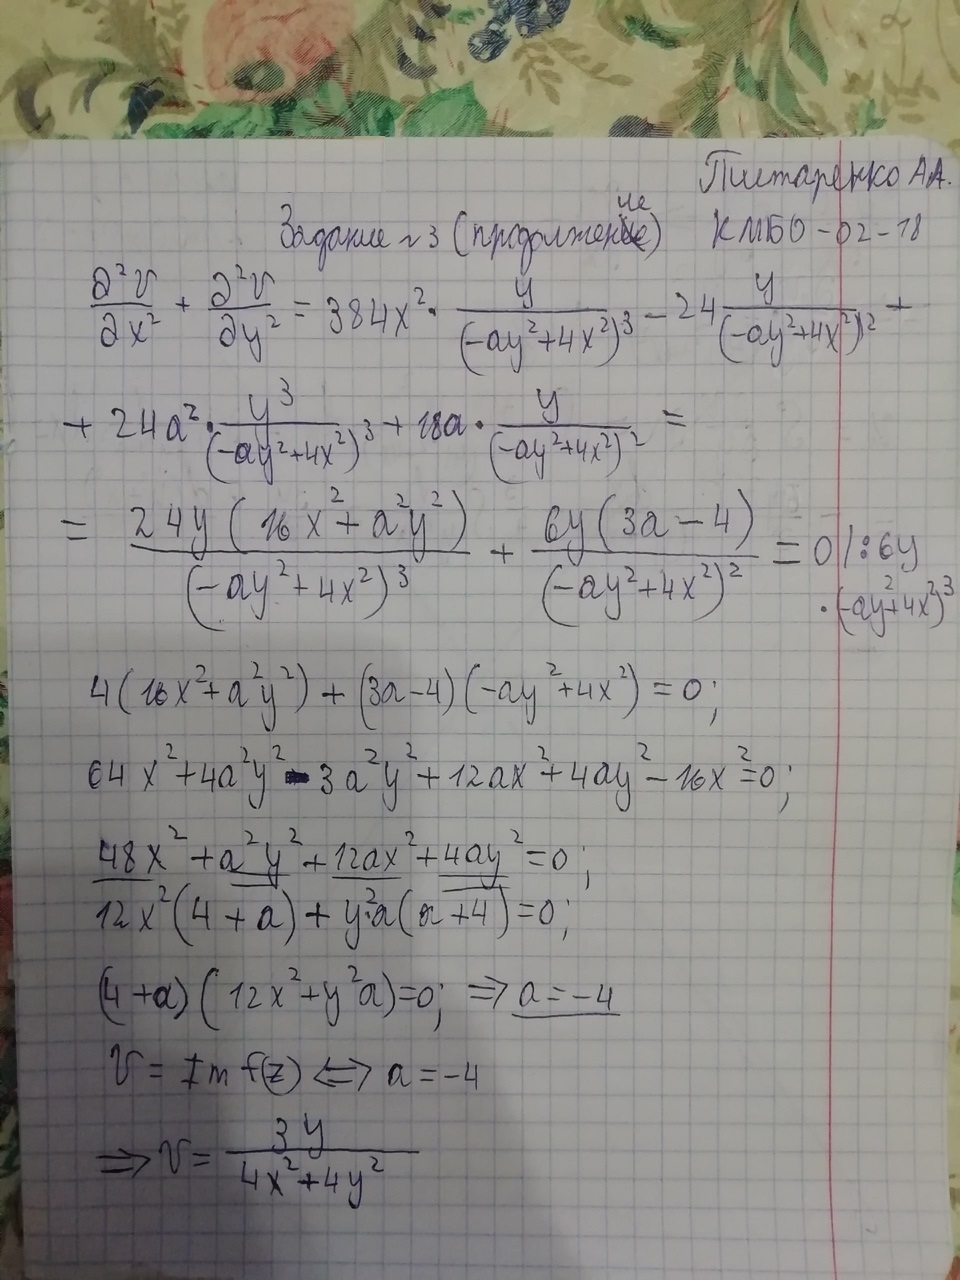 Пиштаренко А.А.
Задание №3 (продолжение) КМБО-02-18
∂²v/∂x² + ∂²v/∂y² = 384x² · y/(-ay²+4x²)³ - 24 y/(-ay²+4x²)² +
+ 24a² · y³/(-ay²+4x²)³ + 18a · y/(-ay²+4x²)² =
= 24y(16x²+a²y²)/(-ay²+4x²)³ + 6y(3a-4)/(-ay²+4x²)² = 0 /:6y
·(-ay²+4x²)³
4(16x²+a²y²) + (3a-4)(-ay²+4x²) = 0;
64x²+4a²y²-3a²y²+12ax²+4ay²-16x²=0;
48x²+a²y²+12ax²+4ay²=0;
12x²(4+a)+y²a(a+4)=0;
(4+a)(12x²+y²a)=0; ⇒ a=-4
V = Im f(z) ⇔ a=-4
⇒ V = 3y/(4x²+4y²)